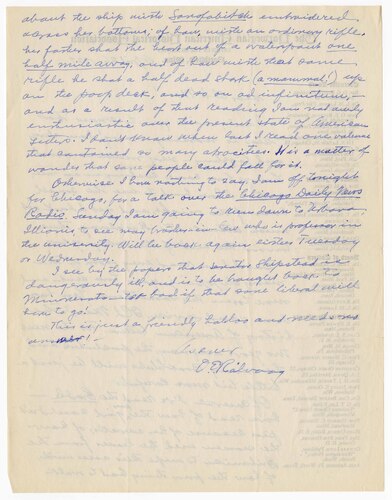 about the ship with Sonofabitch embroidered
across her bottoms; of how, with an ordinary rifle,
his father shot the heart out of a waterspout one
half mile away, and of how with that same
rifle he shot a half dead stork (a mammal!) up
on the poop deck, and so on ad infinitum –
and as a result of that reading I am not only
enthusiastic over the present state of American
Letters. I don't know when last I read one volume
that contained so many atrocities. It is a matter of
wonder that sane people could fall for it.
Otherwise I have nothing to say, I am off tonight
for Chicago, for a talk over the Chicago Daily News
Radio. Sunday I am going to run down to Urbana
Illinois to see my brother-in-law who is professor in
the university. Will be back again either Tuesday
or Wednesday.
I see by the papers that Senator Shipstead is
dangerously ill, and is to be brought back to
Minnesota – too bad if that sane liberal will
have to go!
This is just a friendly hallos and needs no
answer! –
Ever
O.E. Rölvaag